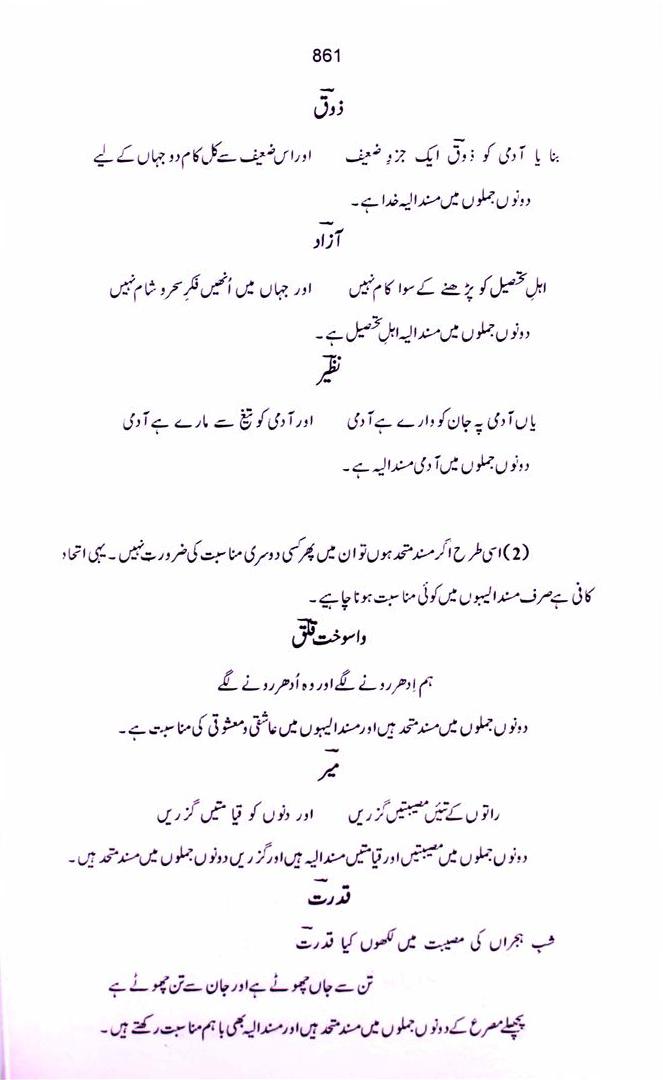 861
ذوقؔ
بنا یا آدمی کو ذوقؔ ایک جزوِ ضعیف اور اس ضعیف سے کل کام دو جہاں کے لیے
دونوں جملوں میں مسند الیہ خدا ہے۔
آزادؔ
اہلِ تحصیل کو پڑھنے کے سوا کام نہیں اور جہاں میں اُنھیں فکرِ سحر و شام نہیں
دونوں جملوں میں مسند الیہ اہلِ تحصیل ہے۔
نظیرؔ
یاں آدمی پہ جان کو وارے ہے آدمی اور آدمی کو تیغ سے مارے ہے آدمی
دونوں جملوں میں آدمی مسند الیہ ہے۔
(2) اسی طرح اگر مسند متحد ہوں تو ان میں پھر کسی دوسری مناسبت کی ضرورت نہیں۔ یہی اتحاد
کافی ہے صرف مسند الیہوں میں کوئی مناسبت ہونا چاہیے۔
واسوخت قلقؔ
ہم اِدھر رونے لگے اور وہ اُدھر رونے لگے
دونوں جملوں میں مسند متحد ہیں اور مسند الیہوں میں عاشقی و معشوقی کی مناسبت ہے۔
میرؔ
راتوں کے تئیں مصیبتیں گزریں اور دنوں کو قیامتیں گزریں
دونوں جملوں میں مصیبتیں اور قیامتیں مسند الیہ ہیں اور گزریں دونوں جملوں میں مسند متحد ہیں۔
قدرتؔ
شب ہجراں کی مصیبت میں لکھوں کیا قدرتؔ
تن سے جاں چھوٹے ہے اور جان سے تن چھوٹے ہے
پچھلے مصرع کے دونوں جملوں میں مسند متحد ہیں اور مسند الیہ بھی باہم مناسبت رکھتے ہیں۔